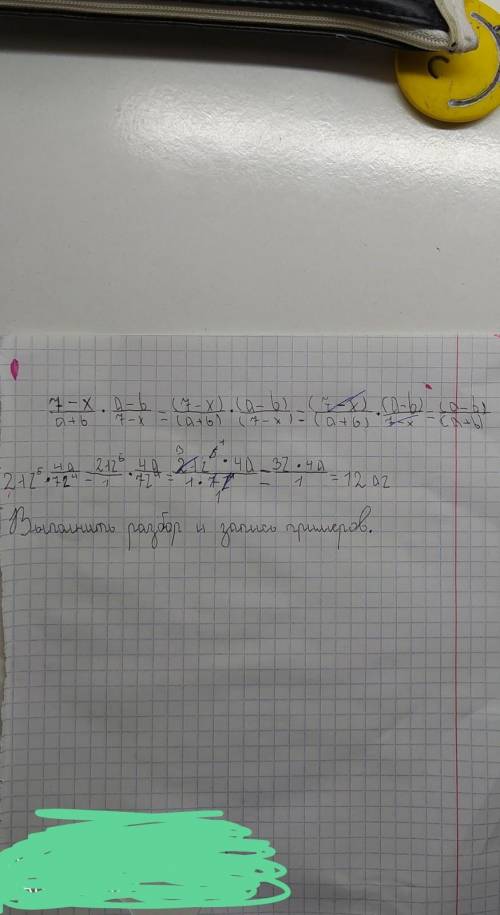 (7-x)/(a+b) · (a-b)/(7-x) = (7-x)/(a+b) · (a-b)/(7-x) = (7-x)/(a+b) · (a-b)/(7-x) = (a-b)/(a+b)
21z⁵ · 4a/7z⁴ = 21z⁵/1 · 4a/7z⁴ = 21z⁵ · 4a/1 · 7z⁴ = 3z · 4a/1 = 12az
Выполнить разбор и запись примеров.